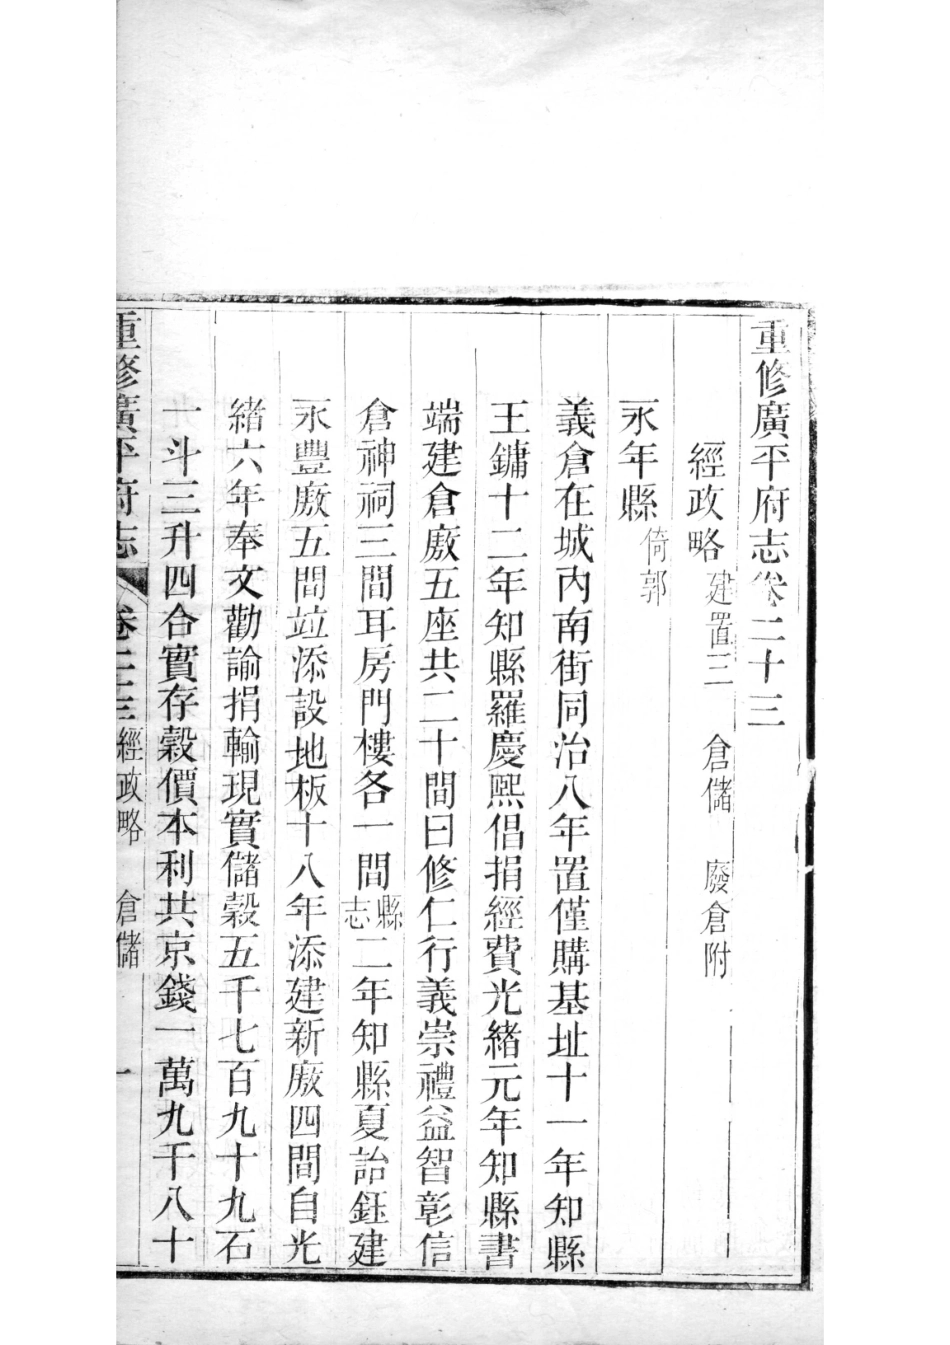 重修廣平府志卷二十三
經政略 建置三 倉儲 廢倉附
永年縣 倚郭
義倉在城內南街同治八年置僅購基址十一年知縣
王鏞十二年知縣羅慶熙倡捐經費光緒元年知縣書
端建倉廒五座共二十間曰修仁行義崇禮益智彰信
倉神祠三間耳房門樓各一間縣志二年知縣夏詒鈺建
永豐廒五間竝添設地板十八年添建新廒四間自光
緒六年奉文勸諭捐輸現實儲穀五千七百九十九石
一斗三升四合實存穀價本利共京錢一萬九千八十
重修廣平府志 卷二十三 經政略 倉儲 一